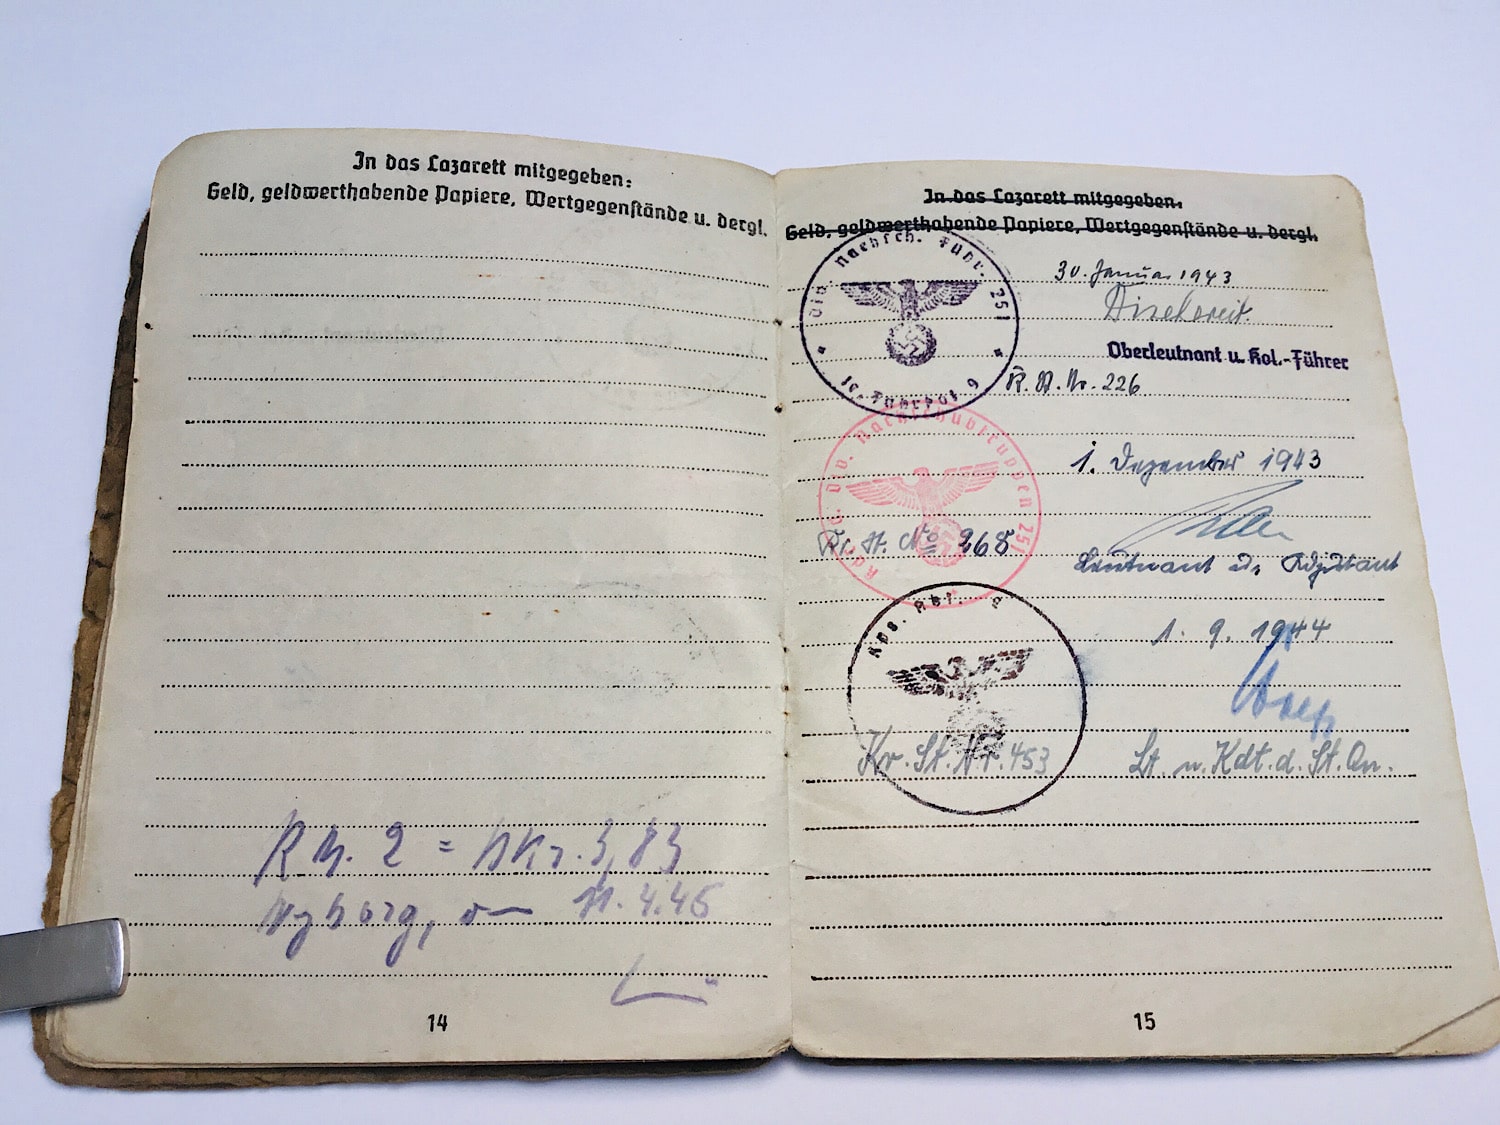 In das Lazarett mitgegeben:
Geld, geldwerthabende Papiere, Wertgegenstände u. dergl.
RM. 2 = dKr. 3,83
Nyborg, 11.4.45
14
In das Lazarett mitgegeben.
Geld, geldwerthabende Papiere, Wertgegenstände u. dergl.
Div. Nachsch. Führ. 251
30. Januar 1943
Oberleutnant u. Kol.-Führer
K. St. Nr. 226
Kdr. d. Div. Nachschubtruppen 251
1. Dezember 1943
Kr. St. No 268
Leutnant u. Adjutant
1. 9. 1944
Kr. St. Nr. 453
Lt. u. Kdt. d. St. Qu.
15